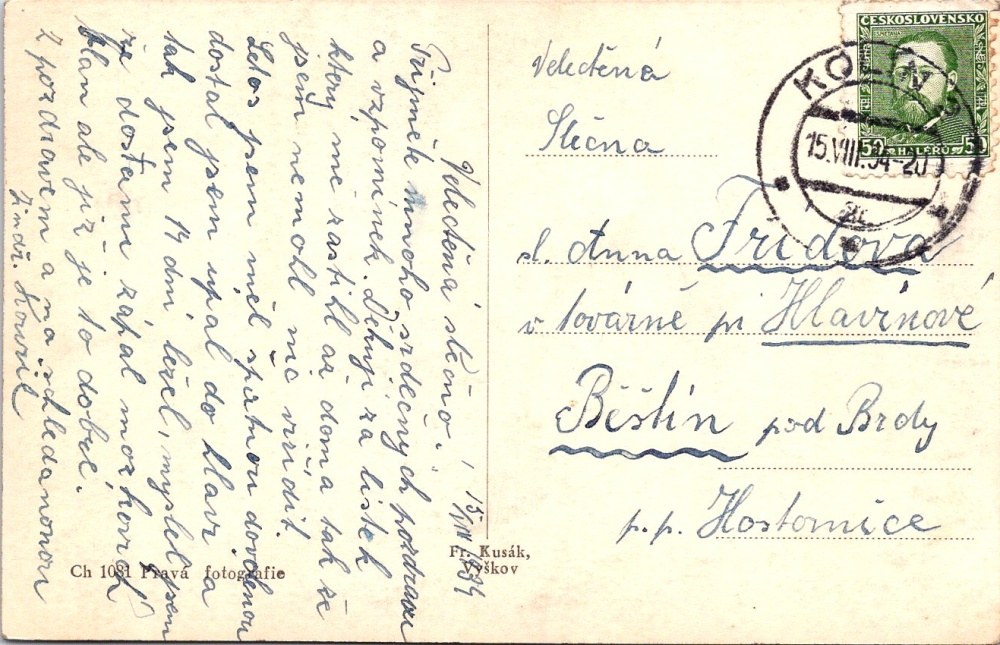 Velectěná slečno.
15/VIII 1934
Přijměte mnoho srdečných pozdravů
a vzpomínek. Děkuji za lístek
který mě zastihl až doma tak že
jsem nemohl nic vřídit.
Letos jsem měl špatnou dovolenou
dostal jsem upal do hlavi a
tak jsem 14 dní ležel, myslel jsem
že dostanu zápal mozkových
blan ale již je to dobré.
Z pozdravem a na schledanonou
Jindř. Kouřil
Ch 1081 Pravá fotografie
Fr. Kusák,
Vyškov
Velectěná
Slečna
sl. Anna Frídova
v továrně pí Hlavínové
Běštín pod Brdy
p.p. Hostomice
ČESKOSLOVENSKO
50 HALÉŘŮ 50
15.VIII.34-20